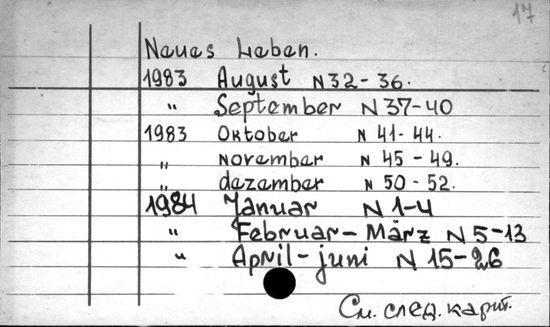 17
Neues Leben.
1983 August N 32 - 36.
" September N 37-40
1983 Oktober N 41 - 44.
" november N 45 - 49.
" dezember N 50 - 52.
1984 Januar N 1-4
" Februar - März N 5-13
" April - juni N 15-26
См. след. карт.